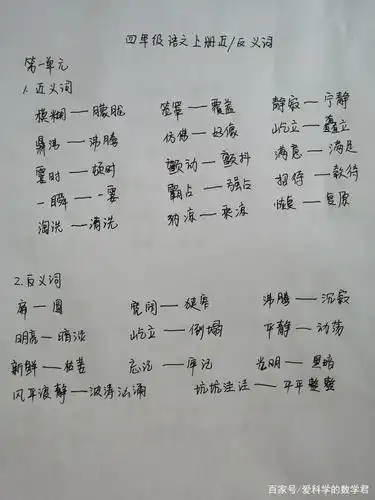 四年级语文上册近/反义词
第一单元
1. 近义词
模糊——朦胧 笼罩——覆盖 静寂——宁静
鼎沸——沸腾 仿佛——好像 屹立——矗立
霎时——顿时 颤动——颤抖 满意——满足
一瞬——一霎 霸占——强占 招待——款待
淘洗——清洗 纳凉——乘凉 恢复——复原
2. 反义词
宽阔——狭窄 沸腾——沉寂
明亮——暗淡 屹立——倒塌 平静——动荡
新鲜——枯萎 忘记——牢记 光明——黑暗
风平浪静——波涛汹涌 坑坑洼洼——平平整整
百家号/爱科学的数学君